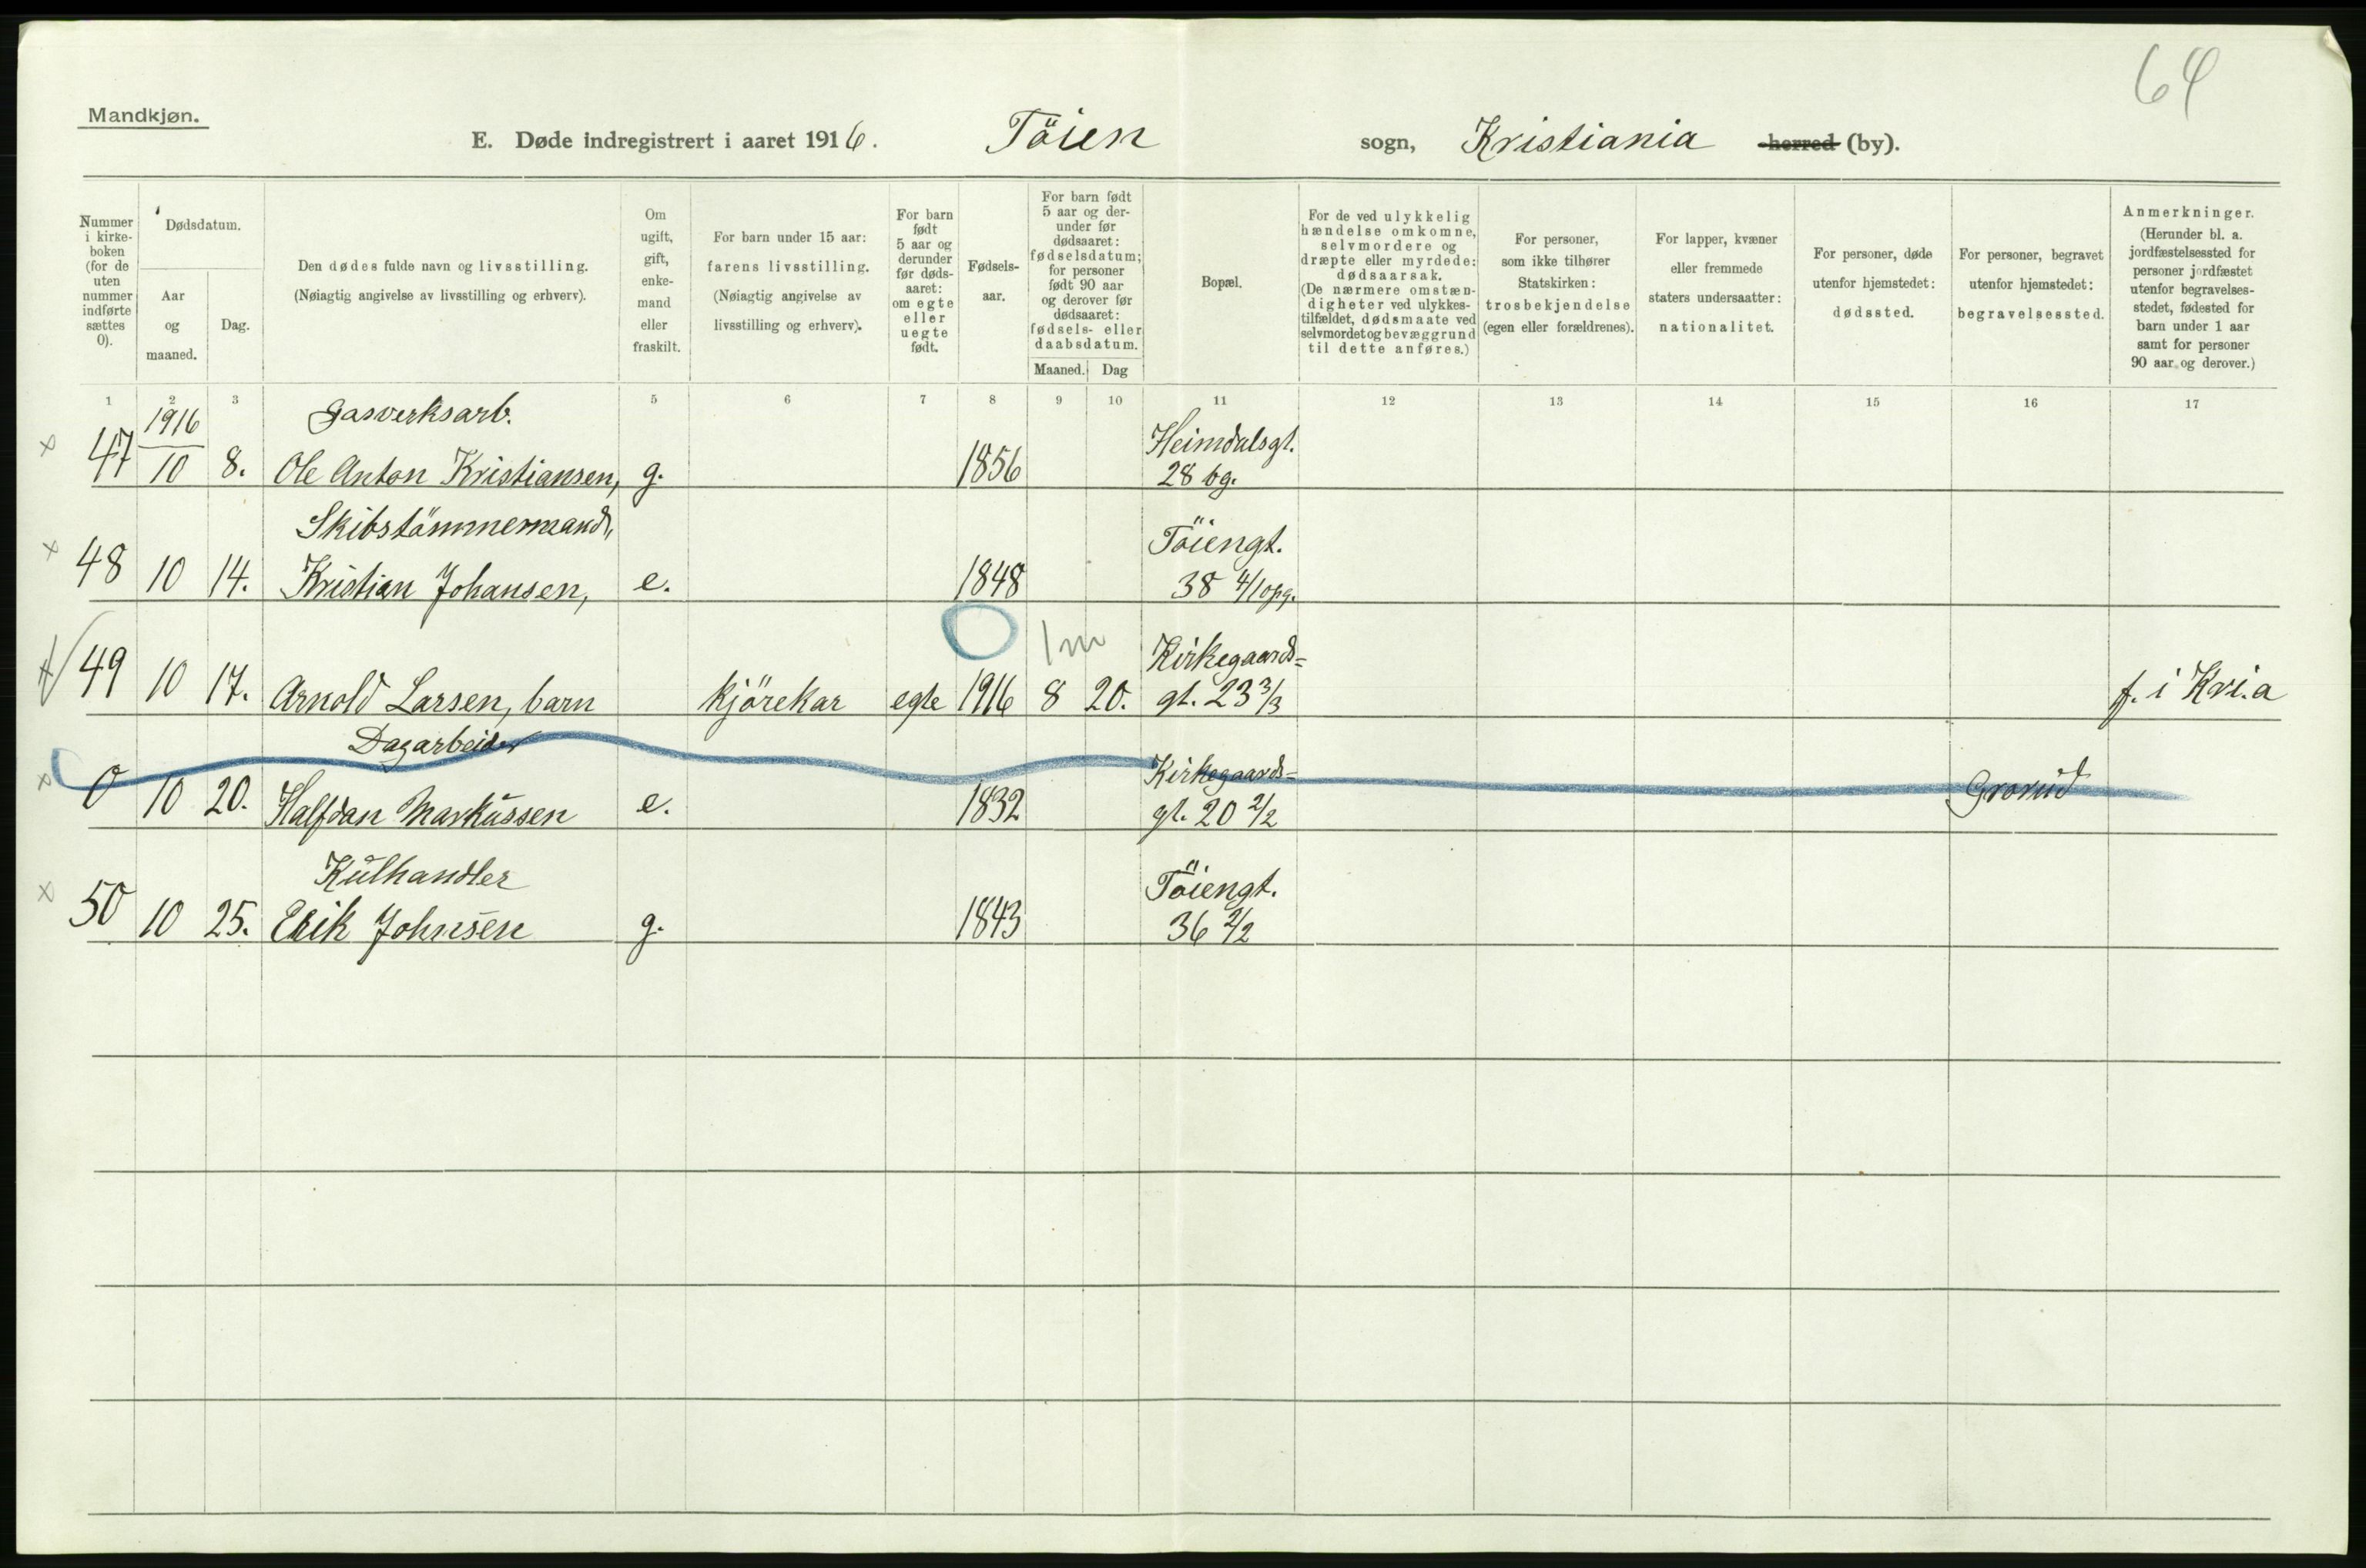 64
Mandkjøn.
E. Døde indregistrert i aaret 1916. Töien sogn, Kristiania herred (by).
Nummer
i kirke-
boken
(for de
uten
nummer
indførte
sættes
0).
Dødsdatum.
Aar
og
maaned.
Dag.
Den dødes fulde navn og livsstilling.
(Nøiagtig angivelse av livsstilling og erhverv).
Om
ugift,
gift,
enke-
mand
eller
fraskilt.
For barn under 15 aar:
farens livsstilling.
(Nøiagtig angivelse av
livsstilling og erhverv).
For barn
født
5 aar og
derunder
før døds-
aaret:
om egte
eller
uegte
født.
Fødsels-
aar.
For barn født
5 aar og der-
under før
dødsaaret:
fødselsdatum;
for personer
født 90 aar
og derover før
dødsaaret:
fødsels- eller
daabsdatum.
Maaned. Dag
Bopæl.
For de ved ulykkelig
hændelse omkomne,
selvmordere og
dræpte eller myrdede:
dødsaarsak.
(De nærmere omstæn-
digheter ved ulykkes-
tilfældet, dødsmaate ved
selvmordet og bevæggrund
til dette anføres.)
For personer,
som ikke tilhører
Statskirken:
trosbekjendelse
(egen eller forældrenes).
For lapper, kvæner
eller fremmede
staters undersaatter:
nationalitet.
For personer, døde
utenfor hjemstedet:
dødssted.
For personer, begravet
utenfor hjemstedet:
begravelsessted.
Anmerkninger.
(Herunder bl. a.
jordfæstelsessted for
personer jordfæstet
utenfor begravelses-
stedet, fødested for
barn under 1 aar
samt for personer
90 aar og derover.)
1 2 3 5 6 7 8 9 10 11 12 13 14 15 16 17
1916 Gasverksarb. Heimdalsgt.
x 47 10 8. Ole Anton Kristiansen, g. 1856 28 bg.
Skibstömmermand, Töiengt.
x 48 10 14. Kristian Johansen, e. 1848 38 4/1 opg.
1 m Kirkegaards=
49 10 17. Arnold Larsen, barn kjörekar egte 1916 8 20. gt. 23 3/3 f. i Kri.a
Dagarbeider Kirkegaards=
x 0 10 20. Halfdan Markussen e. 1832 gt. 20 2/2 Grorud
Kulhandler Töiengt.
x 50 10 25. Erik Johnsen g. 1843 36 2/2